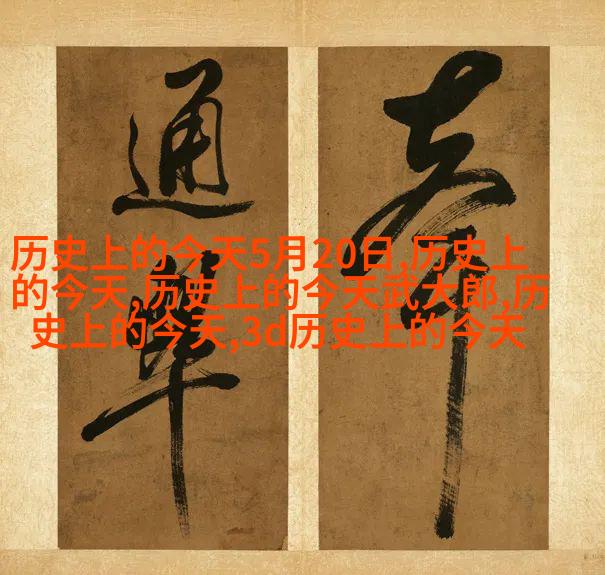 奉
通
历史上的今天5月20日,历史上
的今天,历史上的今天武大郎,历
史上的今天,3d历史上的今天